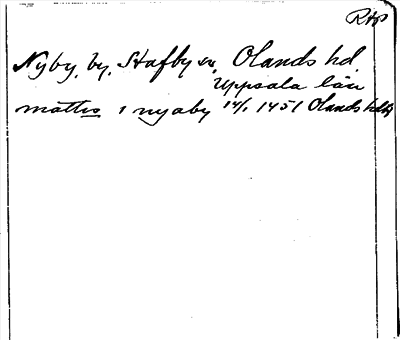 Rtp
Nyby, by, Stafby sn, Olands hd.
Uppsala län
mattis i nyaby 14/1 1451 Olands hdbg